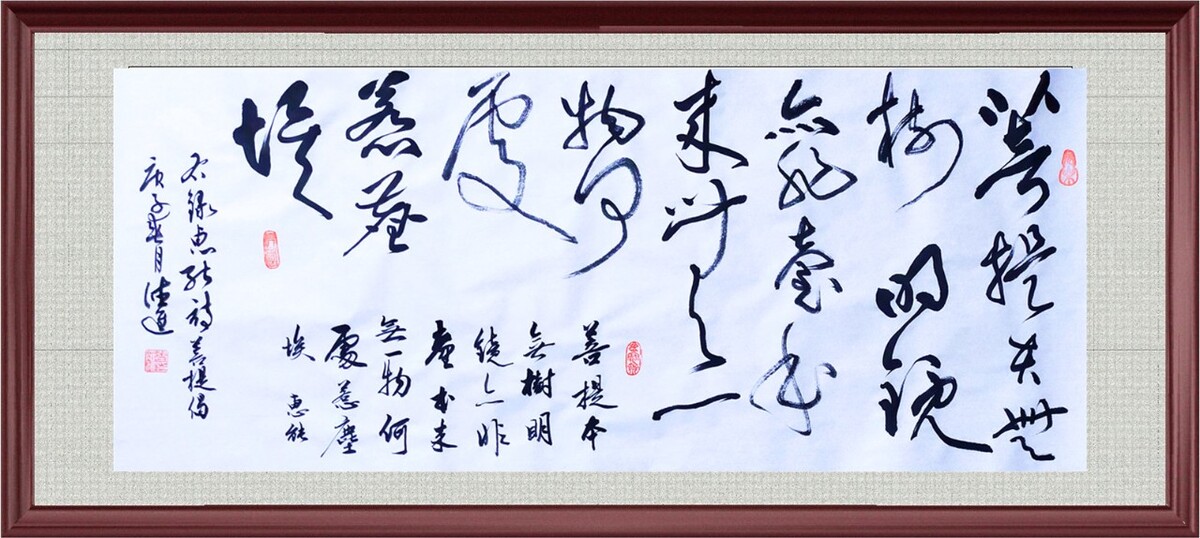 菩提本無
樹明鏡
亦非臺本
来無一
物何
處
惹塵
埃
菩提本
無樹明
鏡亦非
臺本来
無一物何
處惹塵
埃 惠能
右錄惠能詩菩提偈
庚子春月